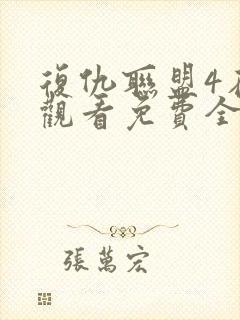 復仇聯盟4
觀看免費全
張萬宏